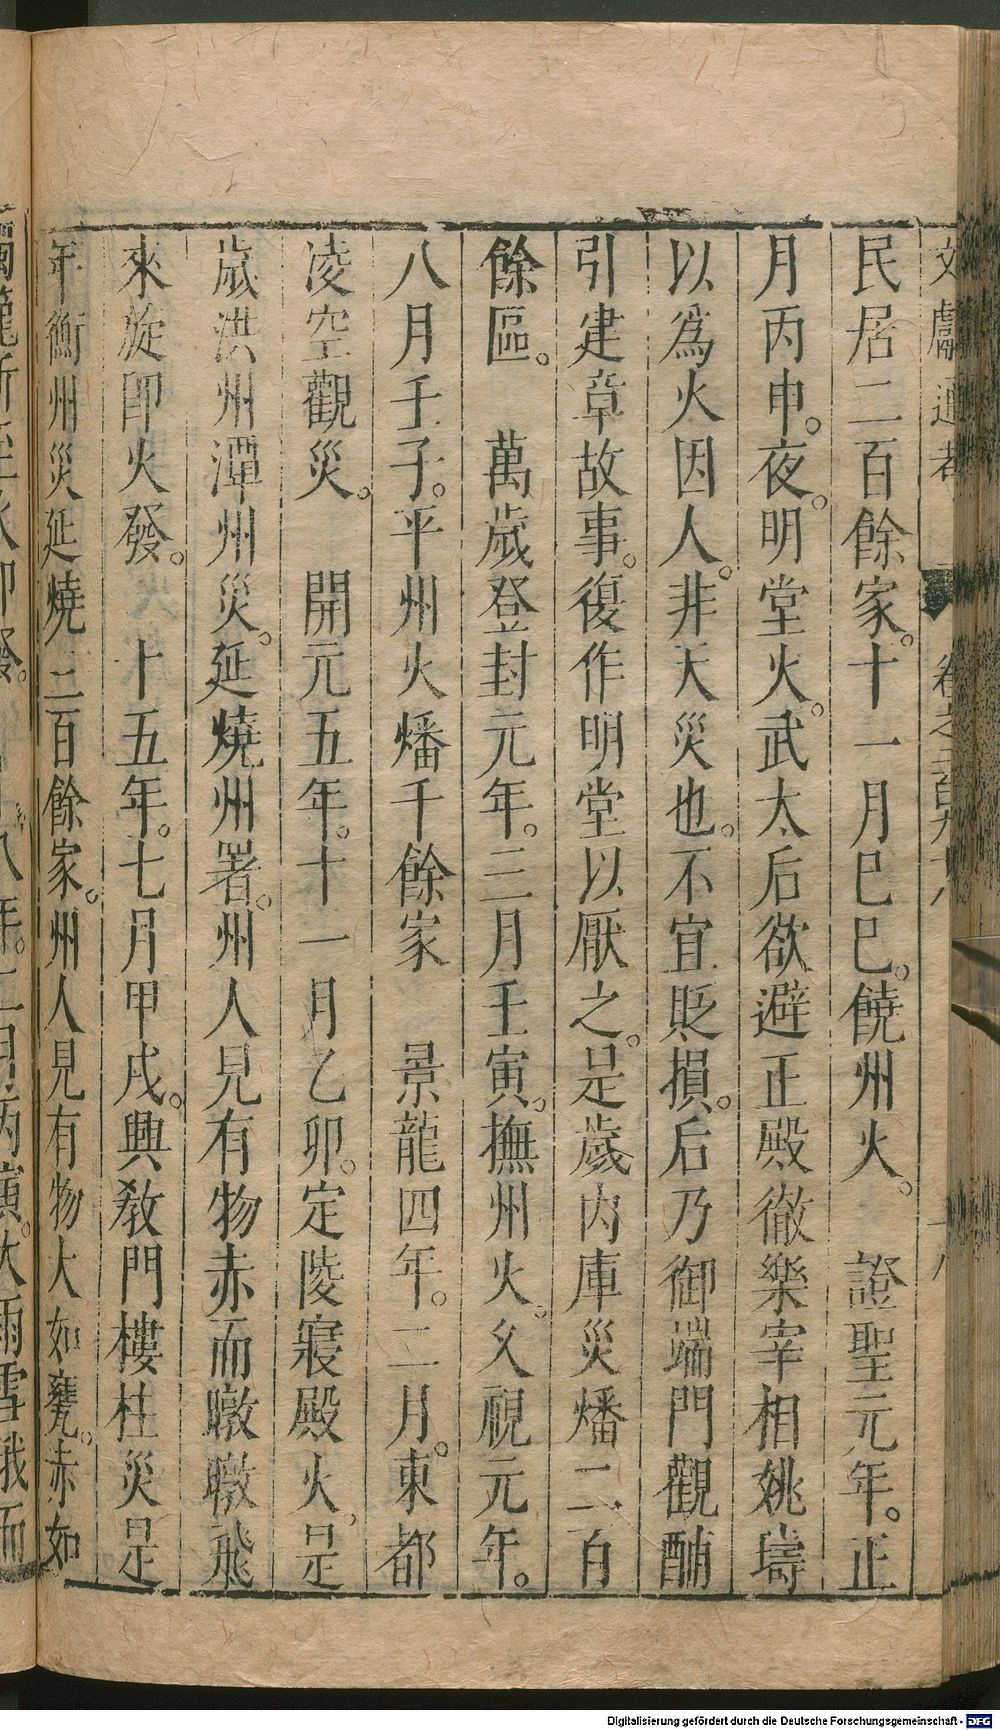 文獻通考 卷之二百九十八 十八
民居二百餘家。十一月巳巳。饒州火。 證聖元年。正
月丙申。夜。明堂火。武太后欲避正殿徹樂宰相姚璹
以爲火因人。非天災也。不宜貶損。后乃御端門觀酺
引建章故事。復作明堂以厭之。是歲内庫災燔二百
餘區。 萬歲登封元年。三月壬寅。撫州火。久視元年。
八月壬子。平州火燔千餘家 景龍四年。二月。東都
凌空觀災。 開元五年。十一月乙卯。定陵寢殿火。是
歲洪州潭州災。延燒州署。州人見有物赤而暾暾飛
來旋卽火發。 十五年。七月甲戌。興敎門樓柱災是
年衡州災延燒三百餘家。州人見有物大如甕。赤如
Digitalisierung gefördert durch die Deutsche Forschungsgemeinschaft - DFG